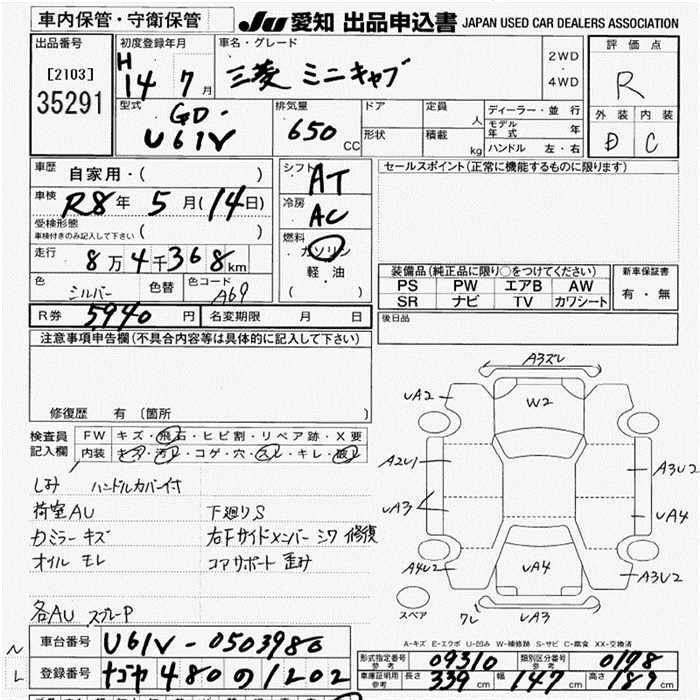 車内保管・守衛保管
JU 愛知 出品申込書 JAPAN USED CAR DEALERS ASSOCIATION
出品番号
[2103]
35291
初度登録年月
H
14 7月
車名・グレード
三菱 ミニキャブ
2WD
・
4WD
評価点
R
外装 内装
D C
型式
GD-
U61V
排気量
650 CC
ドア
形状
定員 人
積載 kg
ディーラー・並行
モデル年式 年
ハンドル 左・右
車歴
自家用・( )
車検
R8年 5月(14日)
受検形態
車検付きのみ記入して下さい ( )
走行
8万4千368km
色
シルバー
色替
色コード
A69
シフト
AT
冷房
AC
燃料
ガソリン
軽油
( )
セールスポイント(正常に機能するものに限ります)
装備品(純正品に限り○をつけてください)
PS PW エアB AW
SR ナビ TV カワシート
新車保証書
有・無
R券 5940円
名変期限 月 日
後日品
注意事項申告欄(不具合内容等は具体的に記入して下さい)
修復歴 有 〔箇所 〕
検査員
記入欄
FW キズ・飛石・ヒビ割・リペア跡・X要
内装 キズ・汚レ・コゲ・穴・スレ・キレ・破レ
しみ ハンドルカバー付
荷室AU 下廻りS
カミラー キズ 右Fサイドメンバー シワ 修復
オイル モレ コアサポート 歪み
各AU スプレーP
A3ズレ
UA2
W2
A2U1
A3U2
UA3
UA4
A4U2
UA4
A3U2
スペア
ワレ
UA3
A-キズ E-エクボ U-凹み W-補修跡 S-サビ C-腐食 XX-交換済
N
L
車台番号 U61V-0503980
登録番号 ナゴヤ 480 の 1202
形式指定番号
参考
09310
類別区分番号
参考
0198
車庫証明用
参考
長さ 339cm 幅 147cm 高さ 189cm